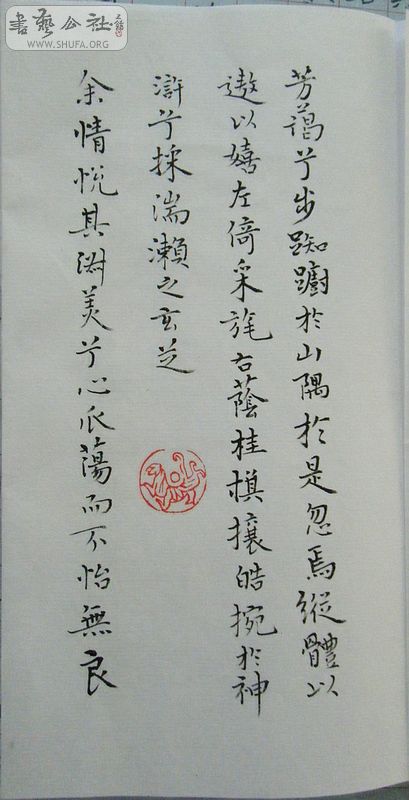 書藝公社
WWW.SHUFA.ORG
芳藹兮步踟躕於山隅於是忽焉縱體以
遨以嬉左倚采旄右蔭桂旗攘皓捥於神
滸兮採湍瀨之玄芝
余情悅其淑美兮心振蕩而不怡無良